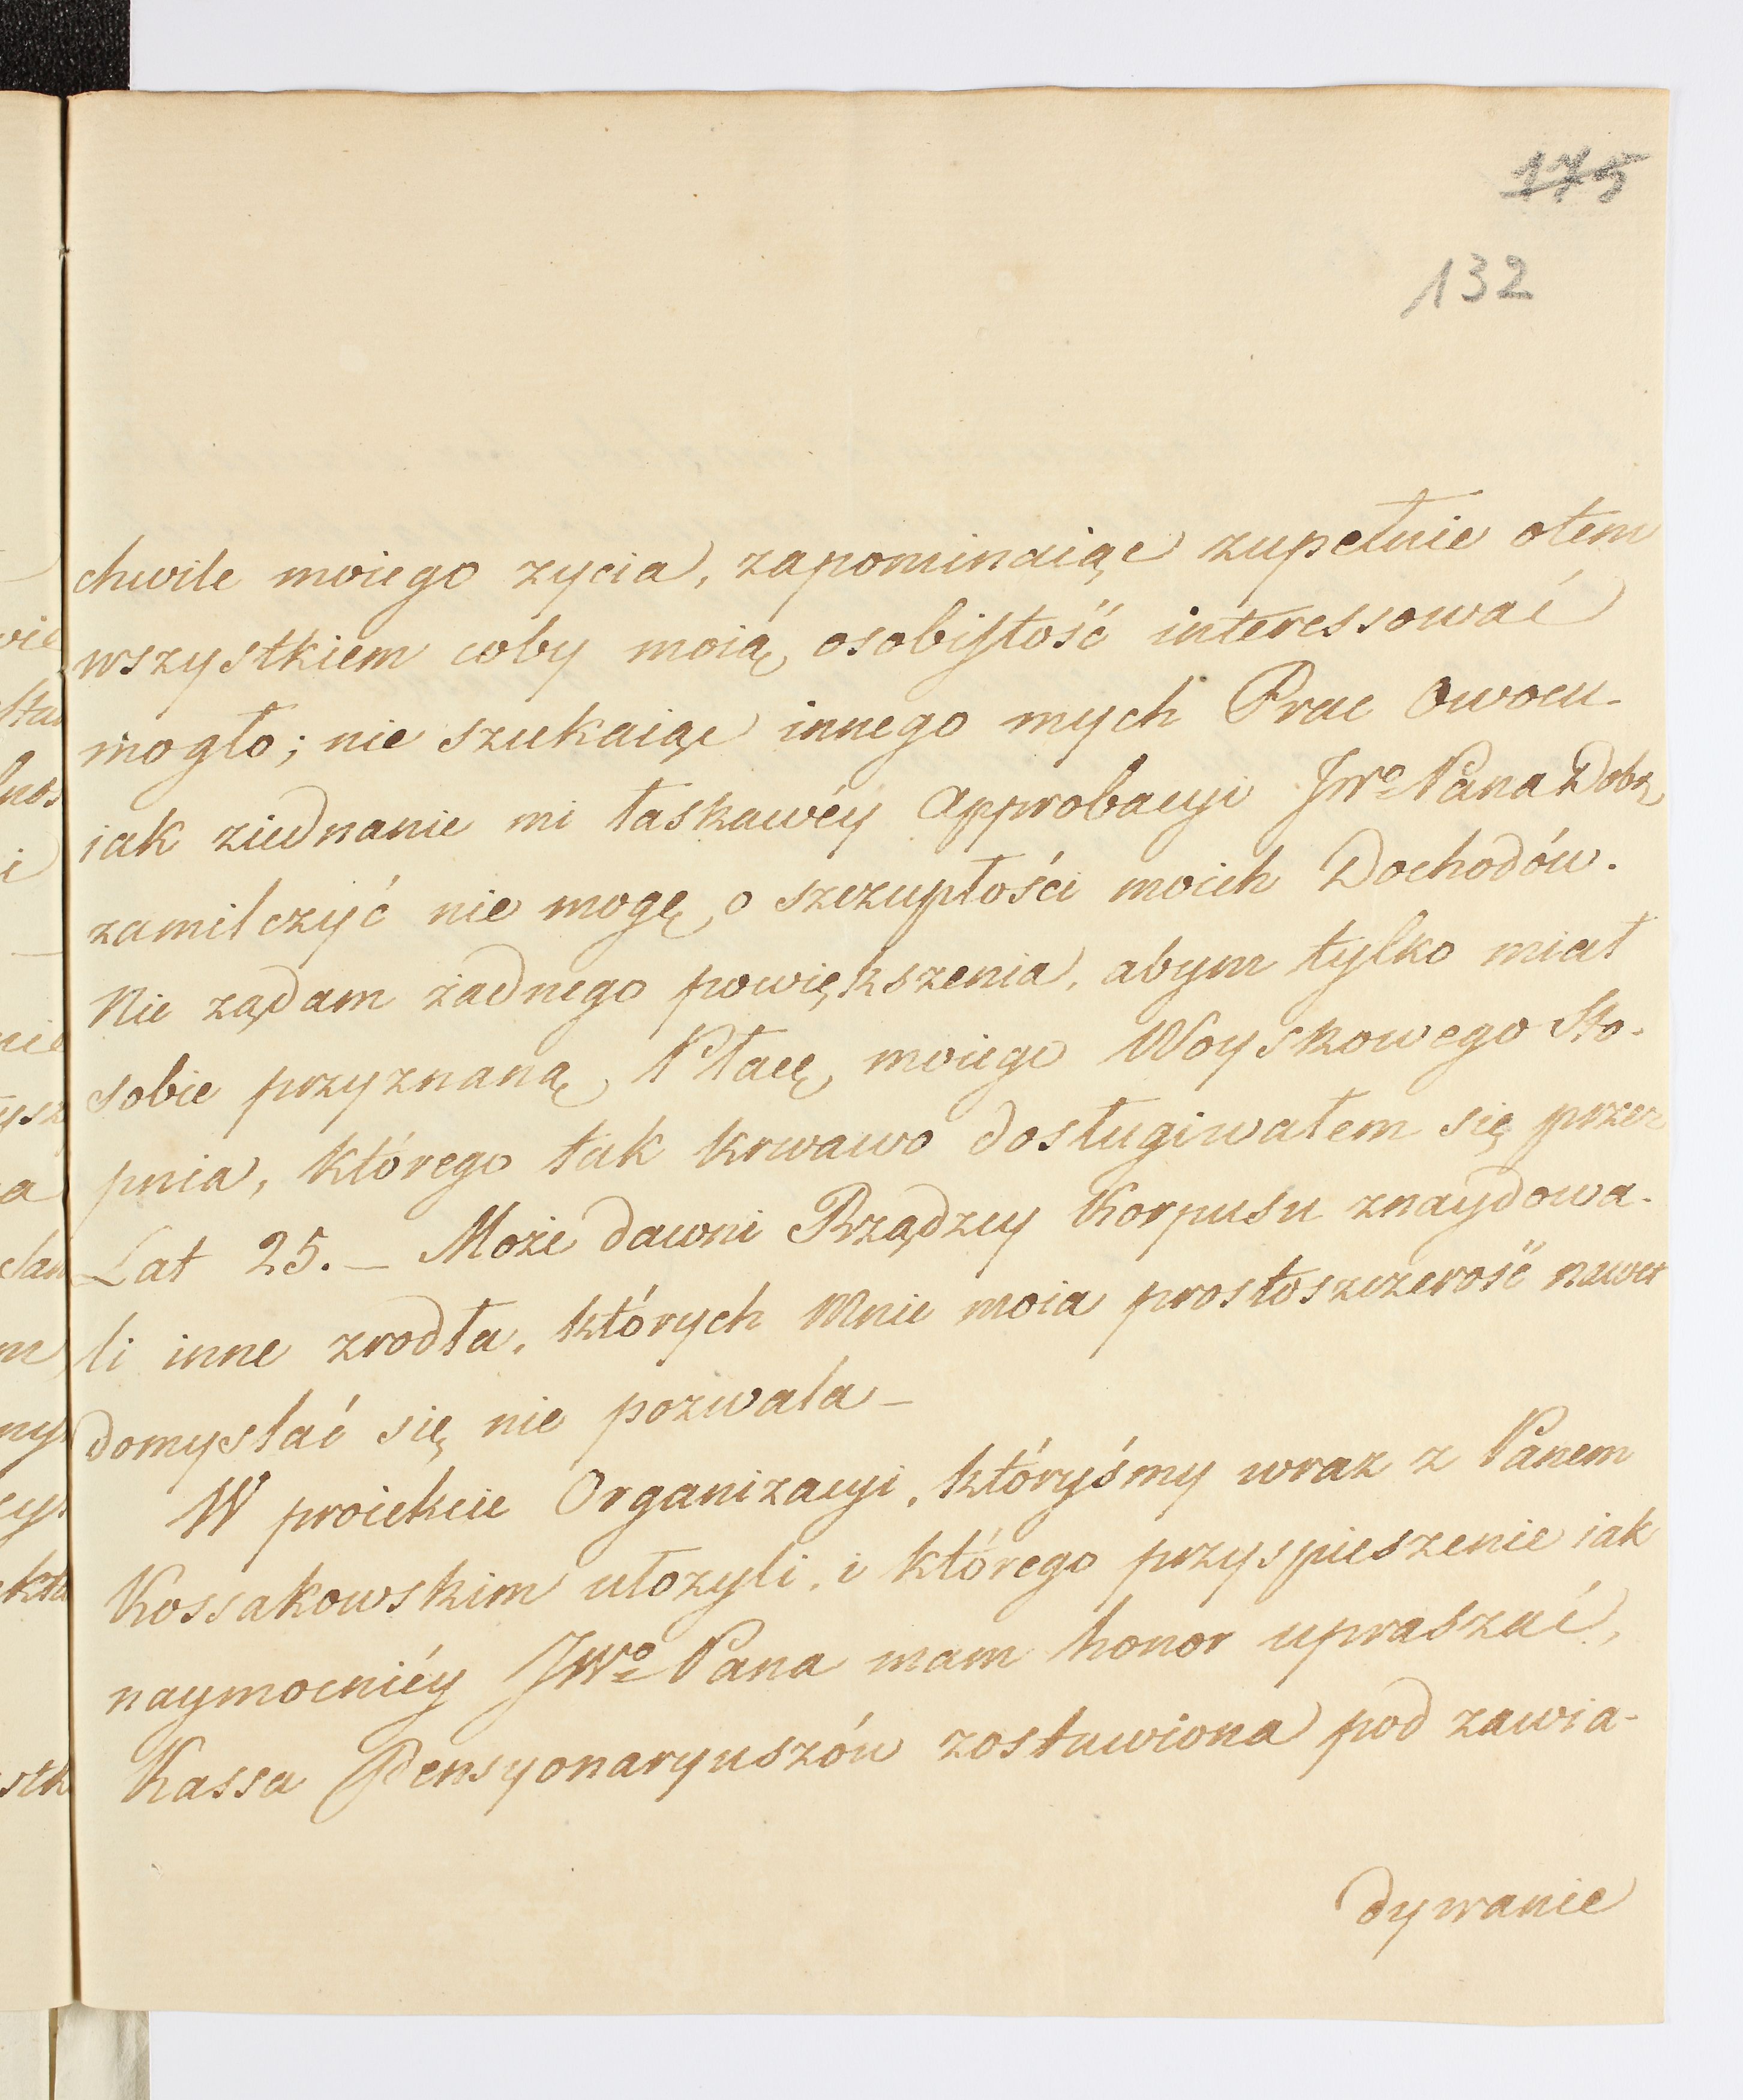 175
132
chwile moiego zycia, zapominaiąc zupełnie otem
wszystkiem coby moią osobistość interessować
mogło; nie szukaiąc innego mych Prac Owocu-
iak ziednanie mi łaskawéy approbacyi JWº Pana Dobr.
zamilczyć nie mogę o szczupłości moich Dochodów.
Nie ządam żadnego powiększenia, abym tylko miał
sobie przyznaną Płacę moiego Woyskowego Sto-
pnia, którego tak krwawo dosługiwałem się przez
Lat 25. – Może dawni Rządzcy Korpusu znaydowa-
li inne zrodła, których Mnie moia prostoszczerość nawet
domyslać się nie pozwala –
W proiekcie Organizacyi, któryśmy wraz z Panem
Kossakowskim ułozyli, i którego przyspieszenie iak
naymocniéy JWº Pana mam honor upraszać,
Kassa Pensyonaryuszów zostawiona pod zawia-
dywanie